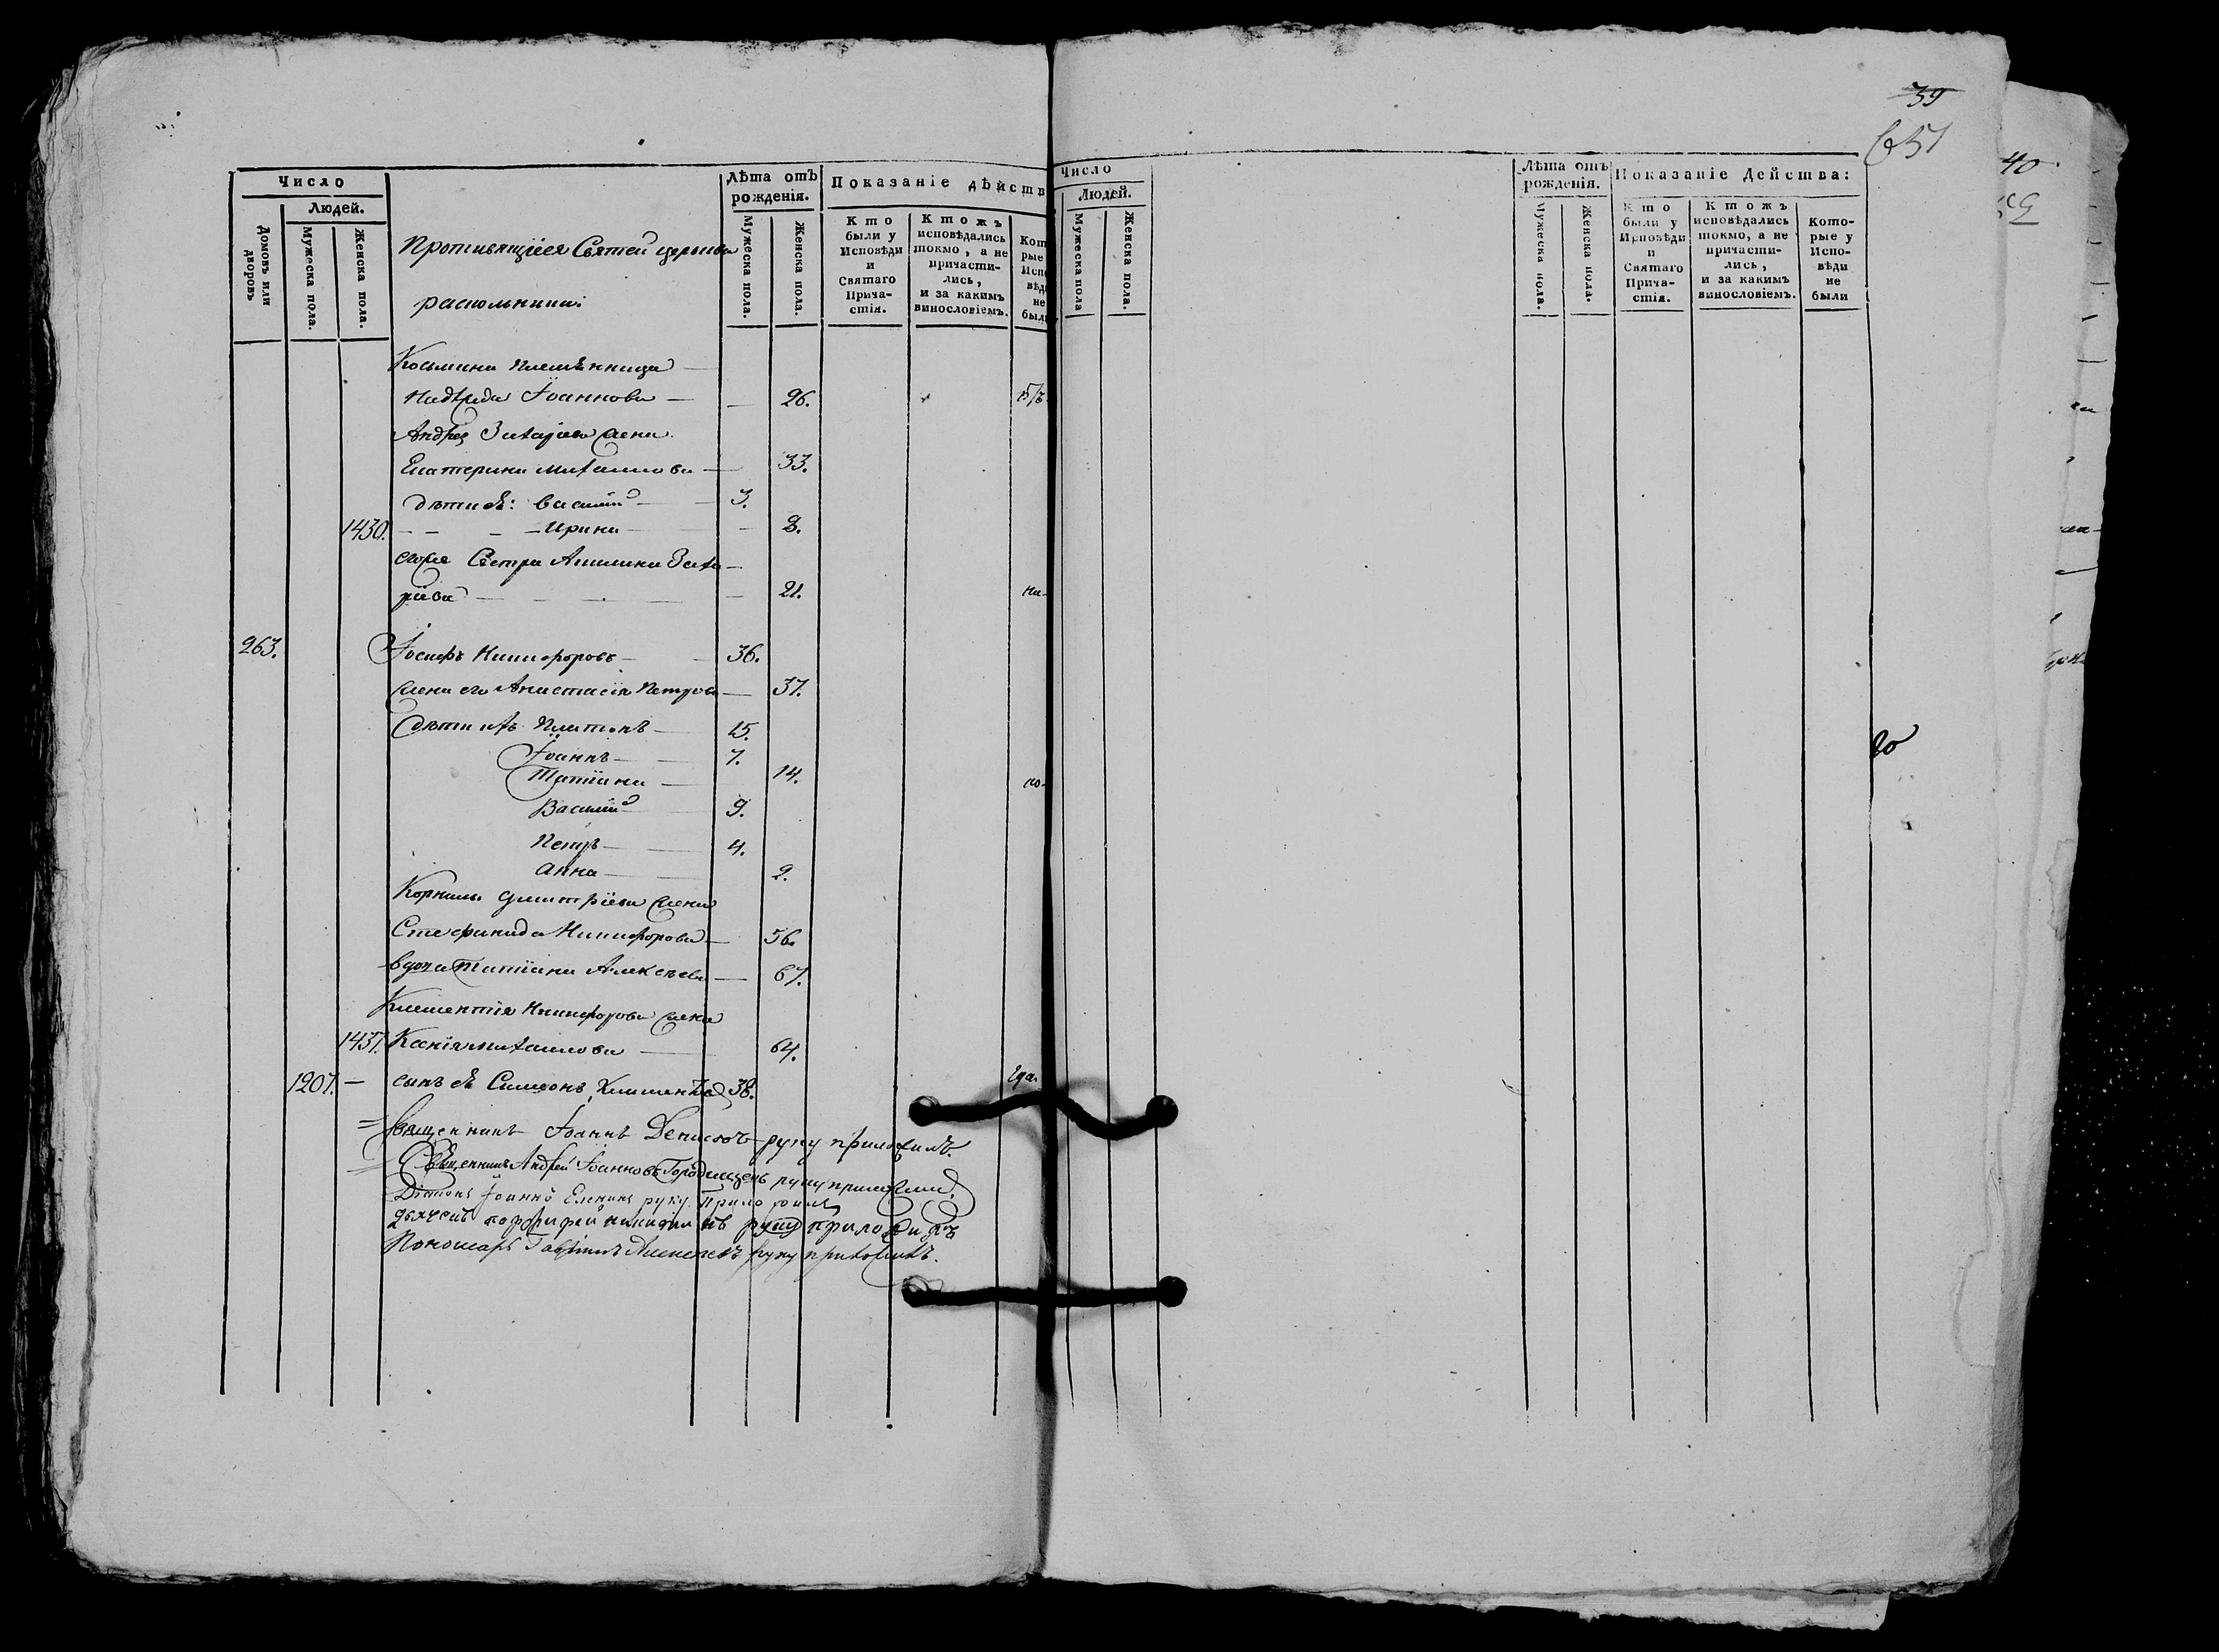 Число
Людей.
Домовъ или дворовъ
Мужеска пола.
Женска пола.
Противящіися Святей церькви
раскольники:
Лѣта отъ рожденія.
Мужеска пола.
Женска пола.
Показаніе дѣйств
Кто были у Исповѣди и Святаго Прича-стія.
Ктожъ исповѣдались токмо, а не причасти-лись, и за какимъ винословіемъ.
Кот рые Исп вѣд не был
Косьмина племѣнница
Надежда Іоаннова — — 26.
Андрея Захаріева жена
Екатерина Михаилова — 33.
дѣти еѣ: Василій — 3.
1430. — — — Ирина — — 8.
его же Сестра Акилина Заха-
ріева — — 21. ни-
263. Іосифъ Никифоровъ — 36.
жена его Анастасія Петрова — 37.
дѣти ихъ Платонъ — 15.
Іоаннъ — 7.
Татіана — 14. ко-
Василій — 9.
Петръ — 4.
Анна — 2.
Корнила Димитріева жена
Стефанида Никифорова — 56.
вдова Татіана Алексѣева — 67.
Климентія Никифорова жена
1437. Ксенія Михаилова — 64.
1207. — сынъ еѣ Симеонъ Климентіевъ 38. гда.
Священникъ Іоаннъ Денисовъ руку приложилъ.
Священникъ Андрей Іоанновъ Городищевъ руку приложилъ.
Діаконъ Іоаннъ Еленинъ руку приложилъ
дьячекъ Порфирей Никифировъ руку приложилъ
Пономарь Гавріилъ Алексѣевъ руку приложилъ.
Число
Людей.
Мужеска пола
Женска пола.
Лѣта отъ рожденія.
Мужеска пола.
Женска пола.
Показаніе Действа:
Кто были у Исповѣди и Святаго Прича-стія.
Ктожъ исповѣдались токмо, а не причасти-лись, и за какимъ винословіемъ.
Кото-рые у Испо-вѣди не были
39
651
40